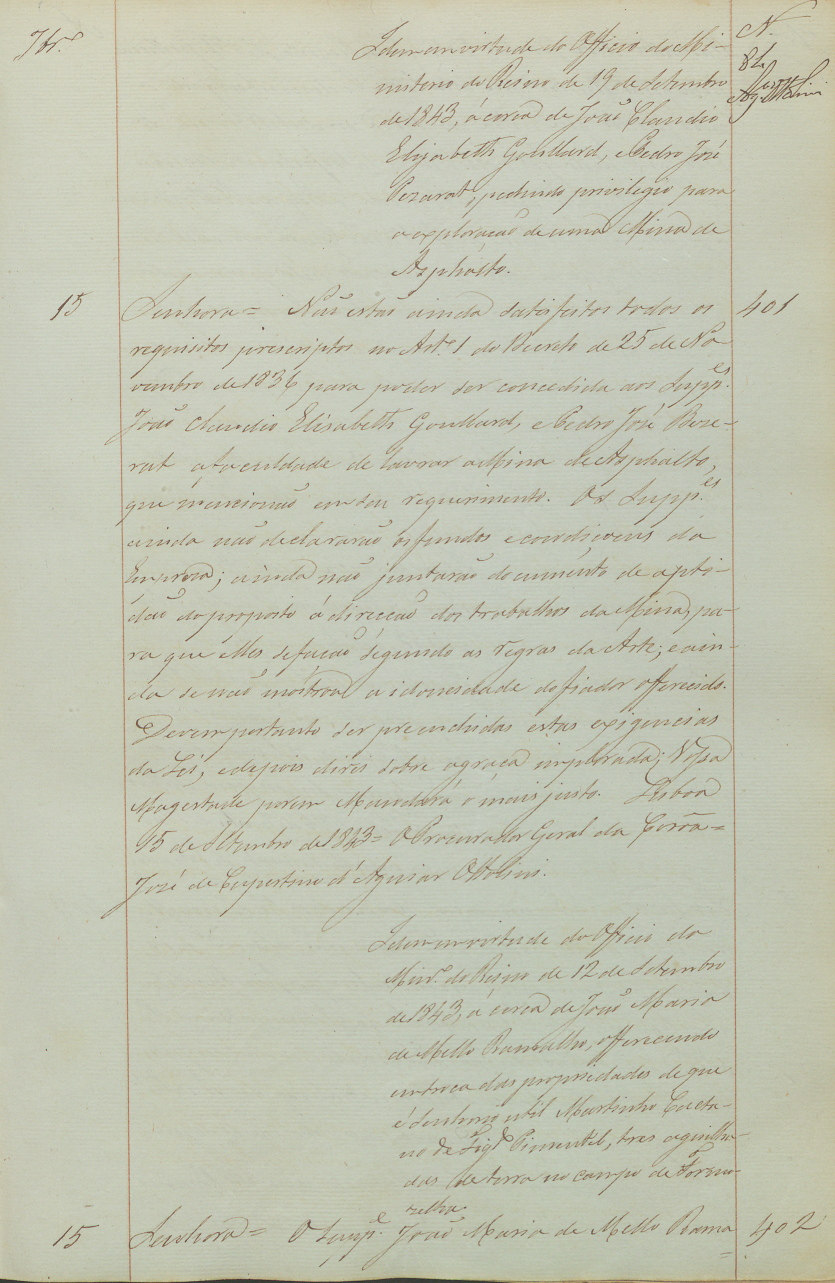 7br.º
N.
84
Aguiar Ottolini
Idem em virtude do Officio do Mi-
nisterio do Reino de 19 de Setembro
de 1843, á cerca de João Claudio
Elijabeth Goullard, e Pedro José
Pezarat, pedindo privilegio para
a exploração de uma Mina de
Asphalto.
15 Senhora = Não estão ainda satisfeitos todos os 401
requisitos prescriptos no Art.º 1 do Decreto de 25 de No
vembro de 1836 para poder ser concedida aos Supp.es
João Claudio Elisabeth Goullard, e Pedro José Peze-
rat a faculdade de lavrar a Mina de Asphalto,
que mencionão em seu requerimento. Os Supp.es
ainda não declararão os fundos e condiçoens da
Empreza; ainda não juntarão documento de apti-
dão do proposto á direcção dos trabalhos da Mina, pa-
ra que elles se fação segundo as regras da Arte; e ain-
da se não mostrou a idoneidade do fiador offerecido.
Devem portanto ser preenchidas estas exigencias
da Lei, e depois direi sobre a graça implorada; Vossa
Magestade porem Mandará o mais justo. Lisboa
15 de Setembro de 1843 = O Procurador Geral da Corôa =
José de Cupertino d'Aguiar Ottolini.
Idem em virtude do Officio do
Min.º do Reino de 12 de Setembro
de 1843, á cerca de João Maria
de Mello Ramalho, offerecendo
em troca das propriedades de que
é Senhorio util Martinho Caeta-
no de Fig.do Pimentel, tres aguilha-
das de terra no campo de
15 Senhora = O Supp.e João Maria de Mello Rama 402
=